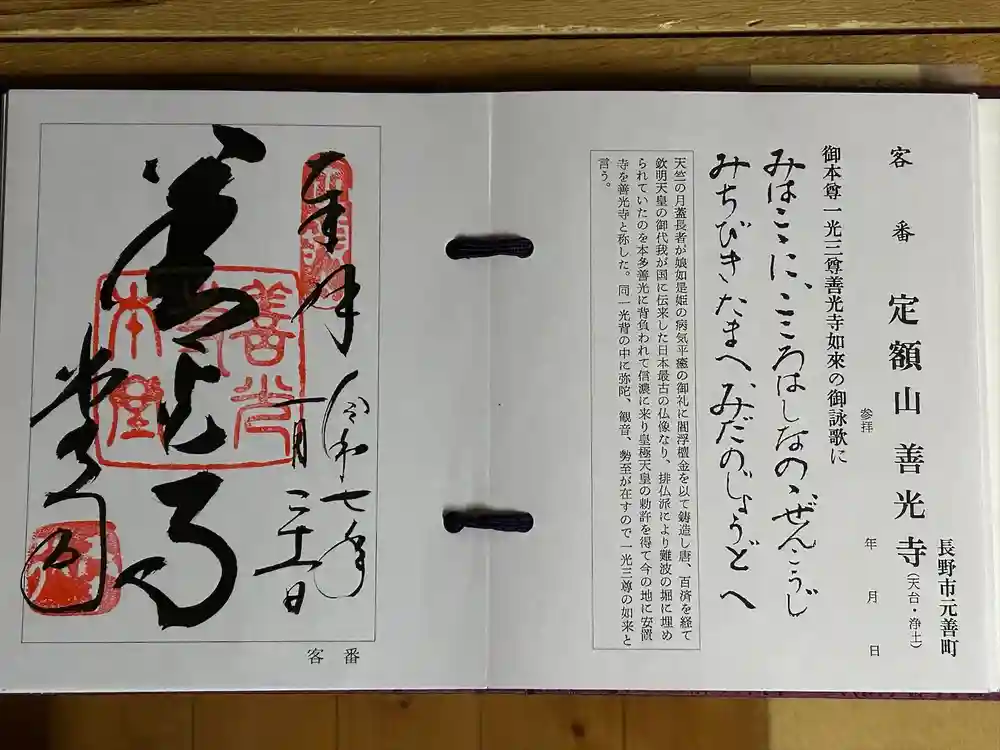 客番 定額山善光寺(天台・浄土)
長野市元善町
参拝 年 月 日
御本尊一光三尊善光寺如來の御詠歌に
みはこゝに、こころはしなの、ぜんこうじ
みちびきたまへ、みだのじょうどへ
天竺の月蓋長者が娘如是姫の病気平癒の御礼に閻浮檀金を以て鋳造し唐、百済を経て
欽明天皇の御代我が国に伝来した日本最古の仏像なり、排仏派により難波の堀に埋め
られていたのを本多善光に背負われて信濃に来り皇極天皇の勅許を得て今の地に安置
寺を善光寺と称した。同一光背の中に弥陀、観音、勢至が在すので一光三尊の如来と
言う。
奉拝
令和七年
一月
二十一日
善光寺
本堂
善光
客番